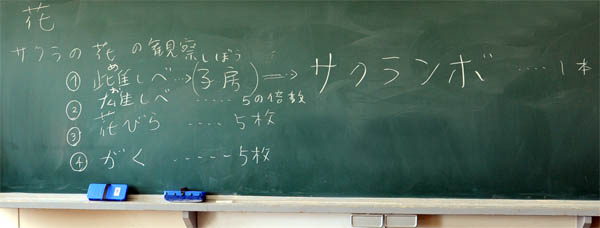 花
サクラの花の観察
① 雌しべ…>(子房)=⇒サクランボ‥‥1本
② 雄しべ……5の倍数
③ 花びら ‥‥5枚
④ がく ‥‥‥5枚
め
お
しぼう